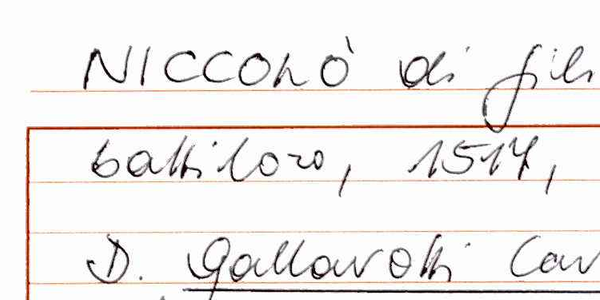 NICCOLÒ di fili
battiloro, 1517,
D. Gallavotti Cav